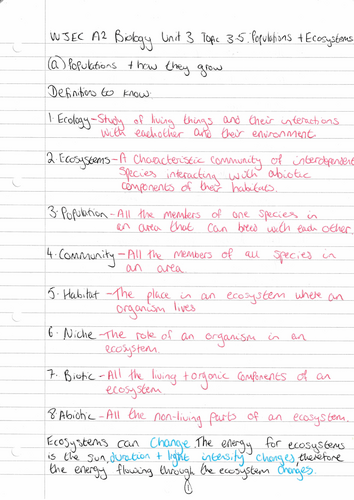 WJEC A2 Biology Unit 3 Topic 3.5 Populations + Ecosystems
(a) Populations + how they grow
Definitions to know:
1. Ecology - Study of living things and their interactions
with eachother and their environment
2. Ecosystems - A characteristic community of interdependent
species interacting with abiotic
components of their habitats.
3. Population - All the members of one species in
an area that can breed with each other.
4. Community - All the members of all species in
an area
5. Habitat - The place in an ecosystem where an
organism lives
6. Niche - The role of an organism in an
ecosystem
7. Biotic - All the living + organic components of an
ecosystem
8. Abiotic - All the non-living parts of an ecosystem.
Ecosystems can change. The energy for ecosystems
is the sun, duration + light intensity changes, therefore
the energy flowing through the ecosystem changes.
1